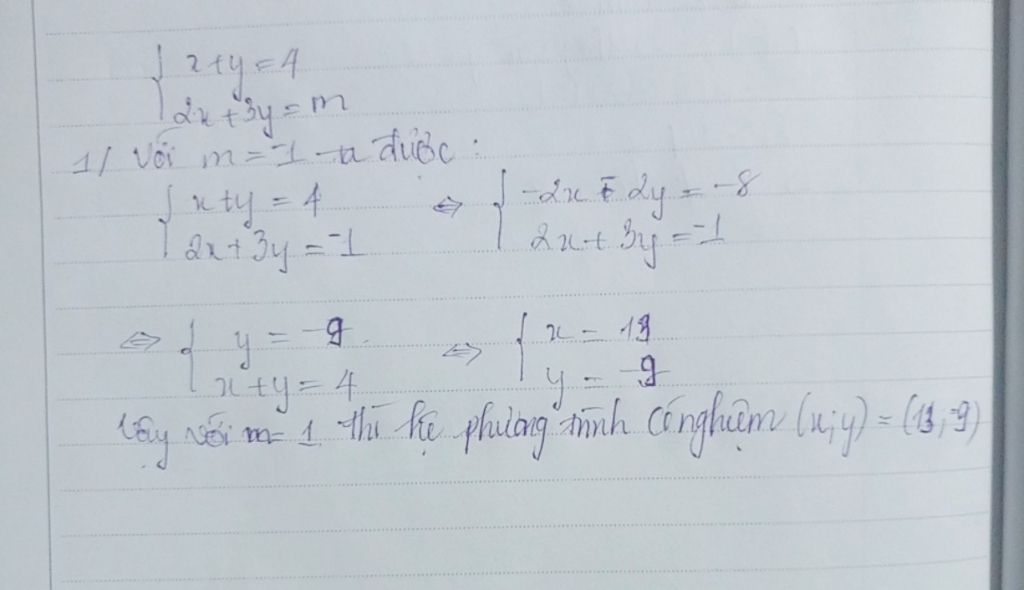 { x+y = 4
2x + 3y = m
1/ Với m = -1 ta được :
{ x+y = 4 ⇔ { -2x - 2y = -8
2x + 3y = -1 2x + 3y = -1
⇔ { y = -9 ⇔ { x = 13
x+y = 4 y = -9
Vậy với m = 1 thì hệ phương trình có nghiệm (x;y) = (13;-9)